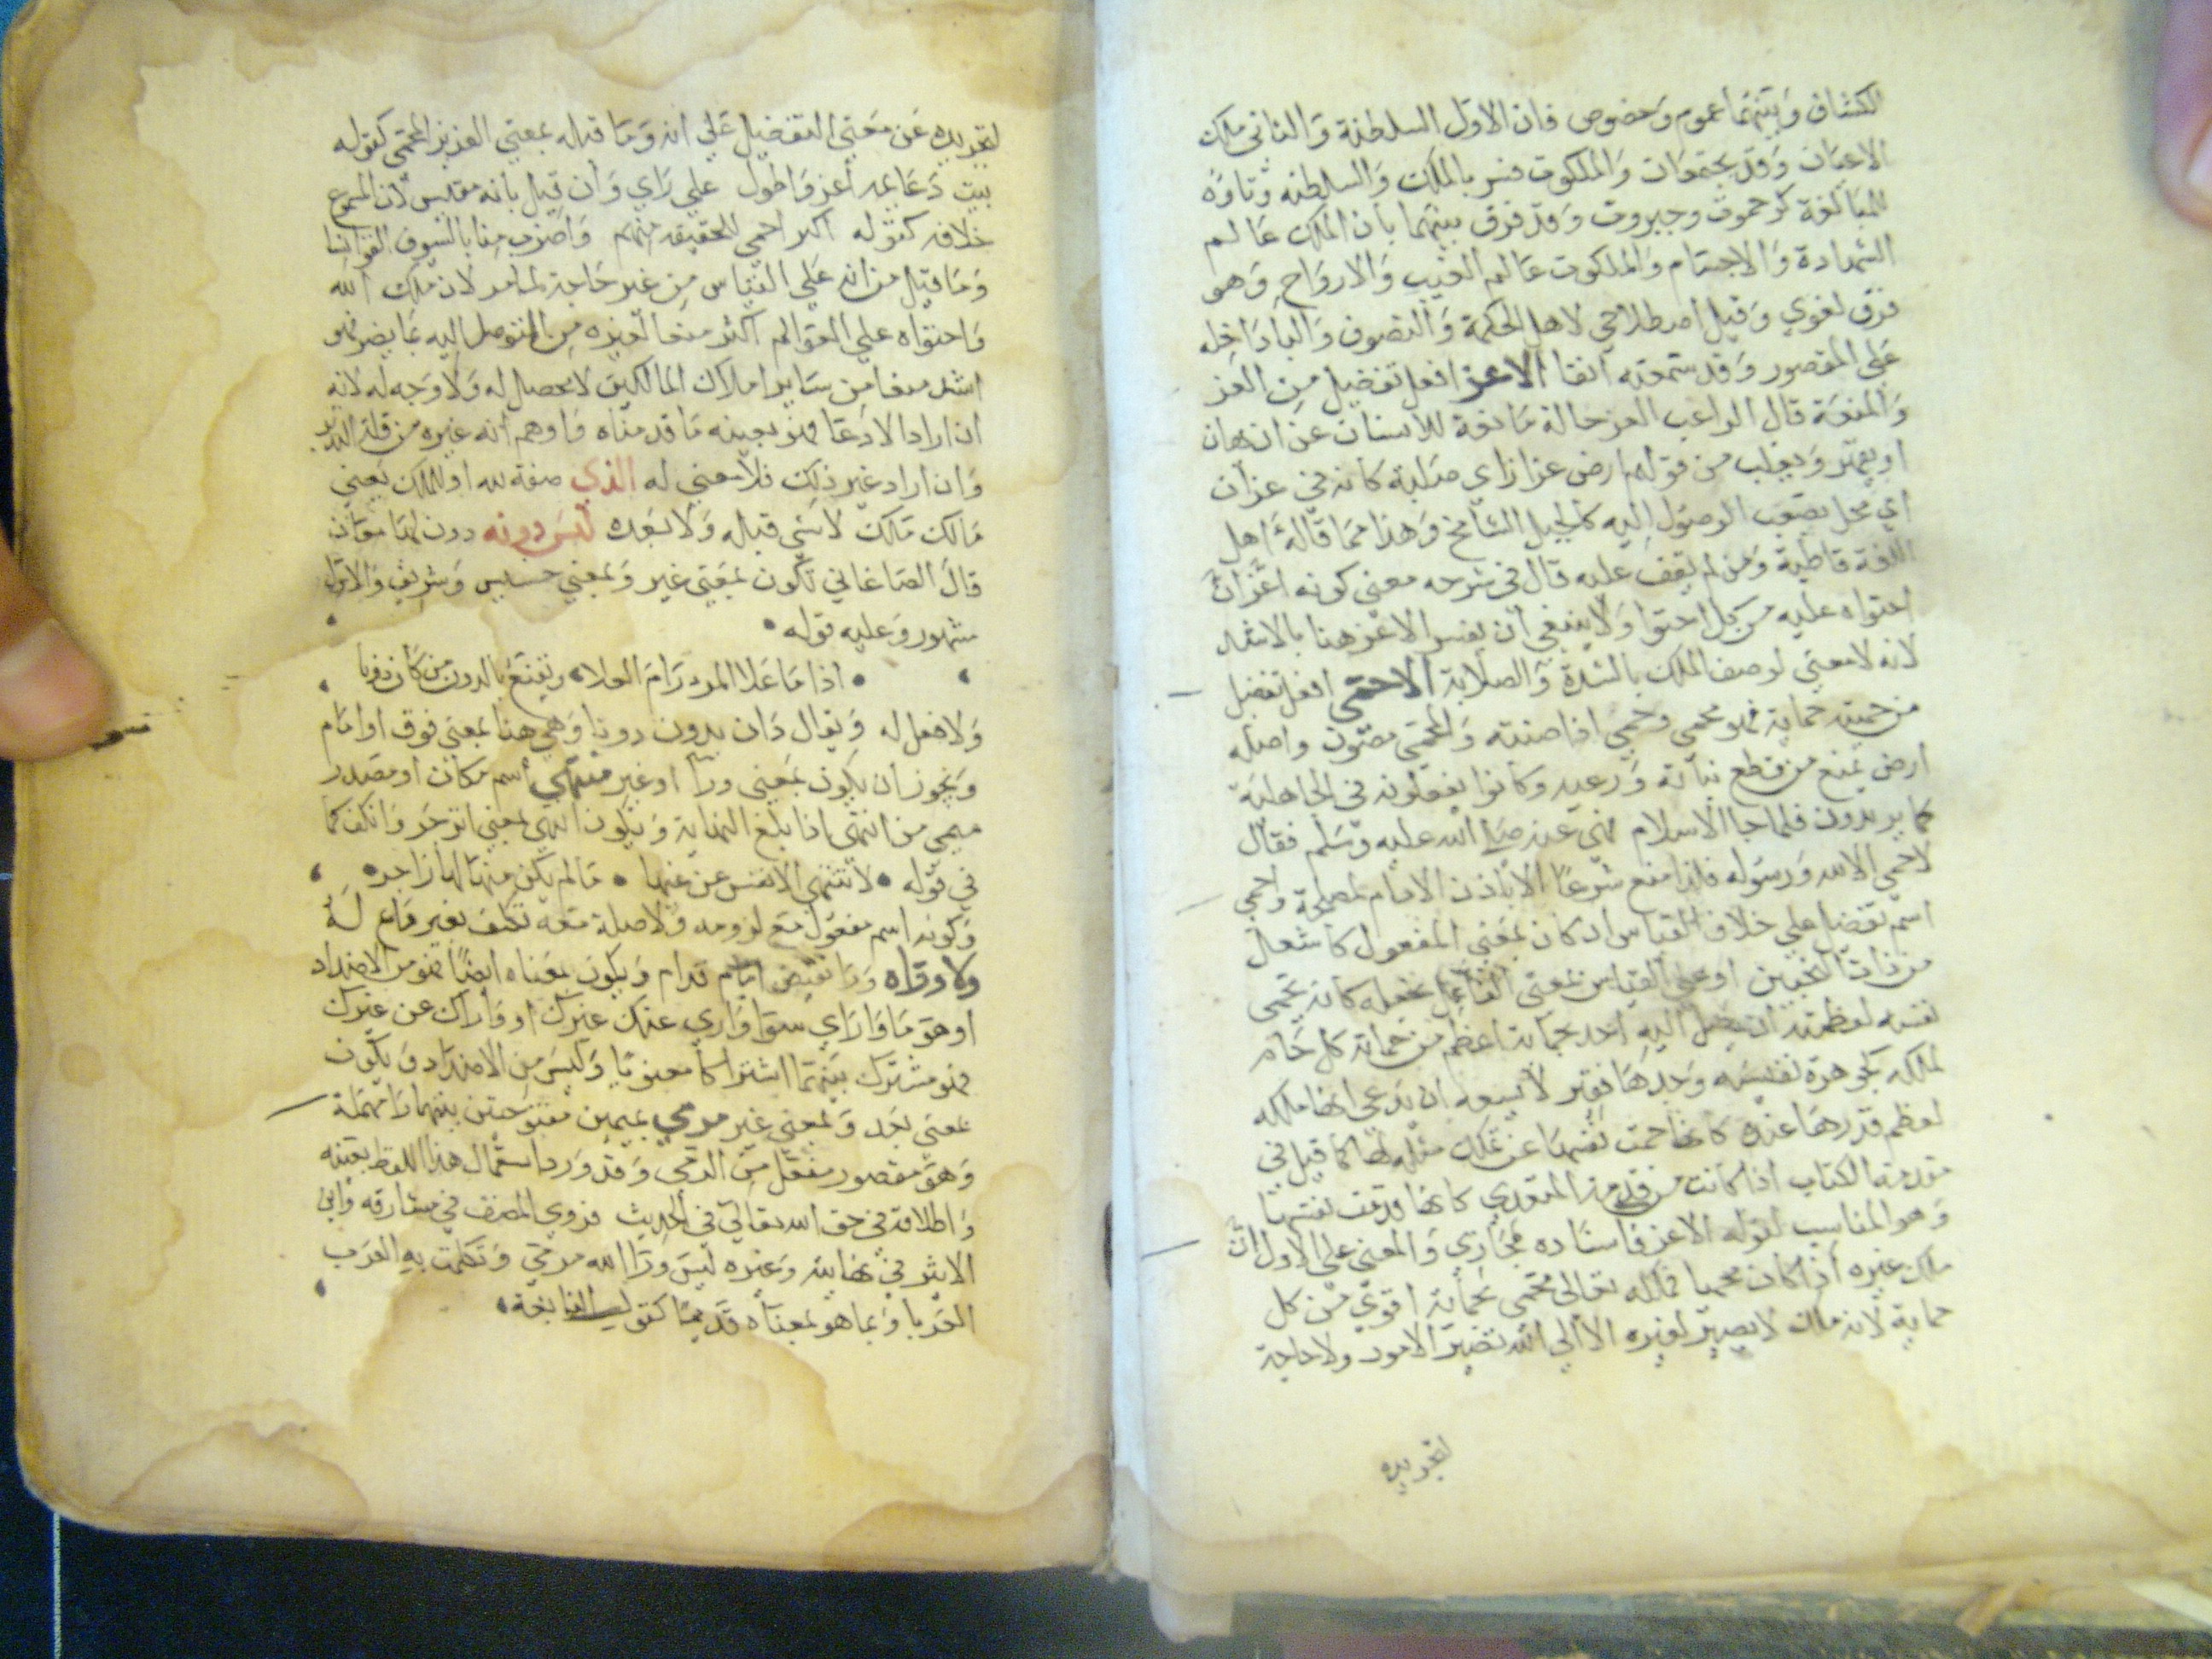 الكشاف وبينهما عموم وخصوص فان الاول السلطنة والثاني ملك
الاعيان وقد يجتمعان والملكوت فسر بالملك والسلطنه وتاوه
للمبالغة كرحموت وجبروت وقد فرق بينهما بان الملك عالم
الشهادة والاجسام والملكوت عالم الغيب والارواح وهو
فرق لغوي وقيل اصطلاحي لاهل الحكمة والتصوف والبا داخله
على المقصور وقد سمعته آنفا الاعز افعل تفضيل من العز
والمنعة قال الراغب العز حالة مانعة للانسان عن ان يهان
او يقهر ويغلب من قولهم ارض عزاز اي صلبة كانه في عزاز
اي محل يصعب الوصول اليه كالجبل الشامخ وهذا مما قاله اهل
اللغة قاطبة ومن لم يقف عليه قال في شرحه معنى كونه اعز ان
احتواه عليه من كل احتوا ولا ينبغي ان يفسر الاعز هنا بالاشد
لانه لا معنى لوصف الملك بالشدة والصلابة الاحمى افعل تفضيل
من حميته حماية فهو محمي وحمي اذا صنته والمحمي مصون واصله
ارض يمنع من قطع نباته ورعيه وكانوا يفعلونه في الجاهلية
كما يريدون فلما جا الاسلام نهي عنه صلى الله عليه وسلم فقال
لا حمي الا لله ورسوله فلذا منع شرعا الا باذن الامام لمصلحة واحمي
اسم تفضيل علي خلاف القياس ان كان بمعني المفعول كاشغل
من ذات النحيين او علي القياس بمعنى الفاعل بجعله كانه يحمي
نفسه لعظمته ان يصل اليه احد بحماية اعظم من حماية كل حام
لملكه كجوهرة نفيسه وجدها فقير لا يسعه ان يدعي انها ملكه
لعظم قدرها عنده كانها حمت نفسها عن تملك مثله لها كما قيل في
مقدمة الكتاب اذا كانت من قدمت المتعدي كانها قدمت نفسها
وهو المناسب لقوله الاعز فاسناده مجازي والمعنى على الاول ان
ملك غيره اذا كان محميا فملكه تعالى محمي بحماية اقوي من كل
حماية لانه ملك لا يصير لغيره الا الي الله تصير الامور ولا حاجة
لتجريده
لتجريده عن معنى التفضيل علي انه وما قبله بمعني العزيز المحمي كقوله
بيت دعايمه أعز واطول علي راي وأن قيل بانه مقيس لان المسموع
خلافه كقوله اكر احمي للحقيقة منهم واضرب منا بالسيوف القوانسا
وما قيل من انه علي القياس من غير حاجة لما مر لان ملك الله
واحتواه علي العوالم اكثر منعا لغيره من التوصل اليه بما يضر فهو
اشد منعا من ساير املاك المالكين لا محصل له ولا وجه له لانه
ان اراد الادعا فهو بعينه ما قدمناه واوهم انه غيره من قلة التدبر
وان اراد غير ذلك فلا معني له الذي صفة لله او للملك يعني
مالك مالك لا شي قبله ولا بعده ليس دونه دون لها معان
قال الصاغاني تكون بمعني غير وبمعني خسيس وشريف والاول
مشهور وعليه قوله
اذا ما علا المرء رام العلا ويقنع بالدون من كان دونا
ولا فعل له ويقال دان يدون دونا وهي هنا بمعني فوق او امام
ويجوز ان يكون بمعني ورا او غير منتهي اسم مكان او مصدر
ميمي من انتهى اذا بلغ النهاية ويكون انتهي بمعني انزجر وانكف كما
في قوله لا تنتهي الانفس عن غيها ما لم يكن منها لها زاجر
وكونه اسم مفعول مع لزومه ولا صلة معه تكلف بغير داع له
ولا وراه ورا نقيض امام قدام ويكون بمعناه ايضا فهو من الاضداد
او هو ما واراي سوا واري عنك غيرك او واراك عن غيرك
فهو مشترك بينهما اشتراكا معنويا وليس من الاضداد ويكون
بمعني بعد وبمعني غير مرمي بميمين مفتوحتين بينهما را مهملة
وهو مقصور مفعل من الرمي وقد ورد استعمال هذا اللفظ بعينه
واطلاقه في حق الله تعالي في الحديث فروي المصنف في مشارقه وابن
الاثير في نهايته وغيره ليس ورا الله مرمي وتكلمت به العرب
العربا وبما هو بمعناه قديما كقول النابغة